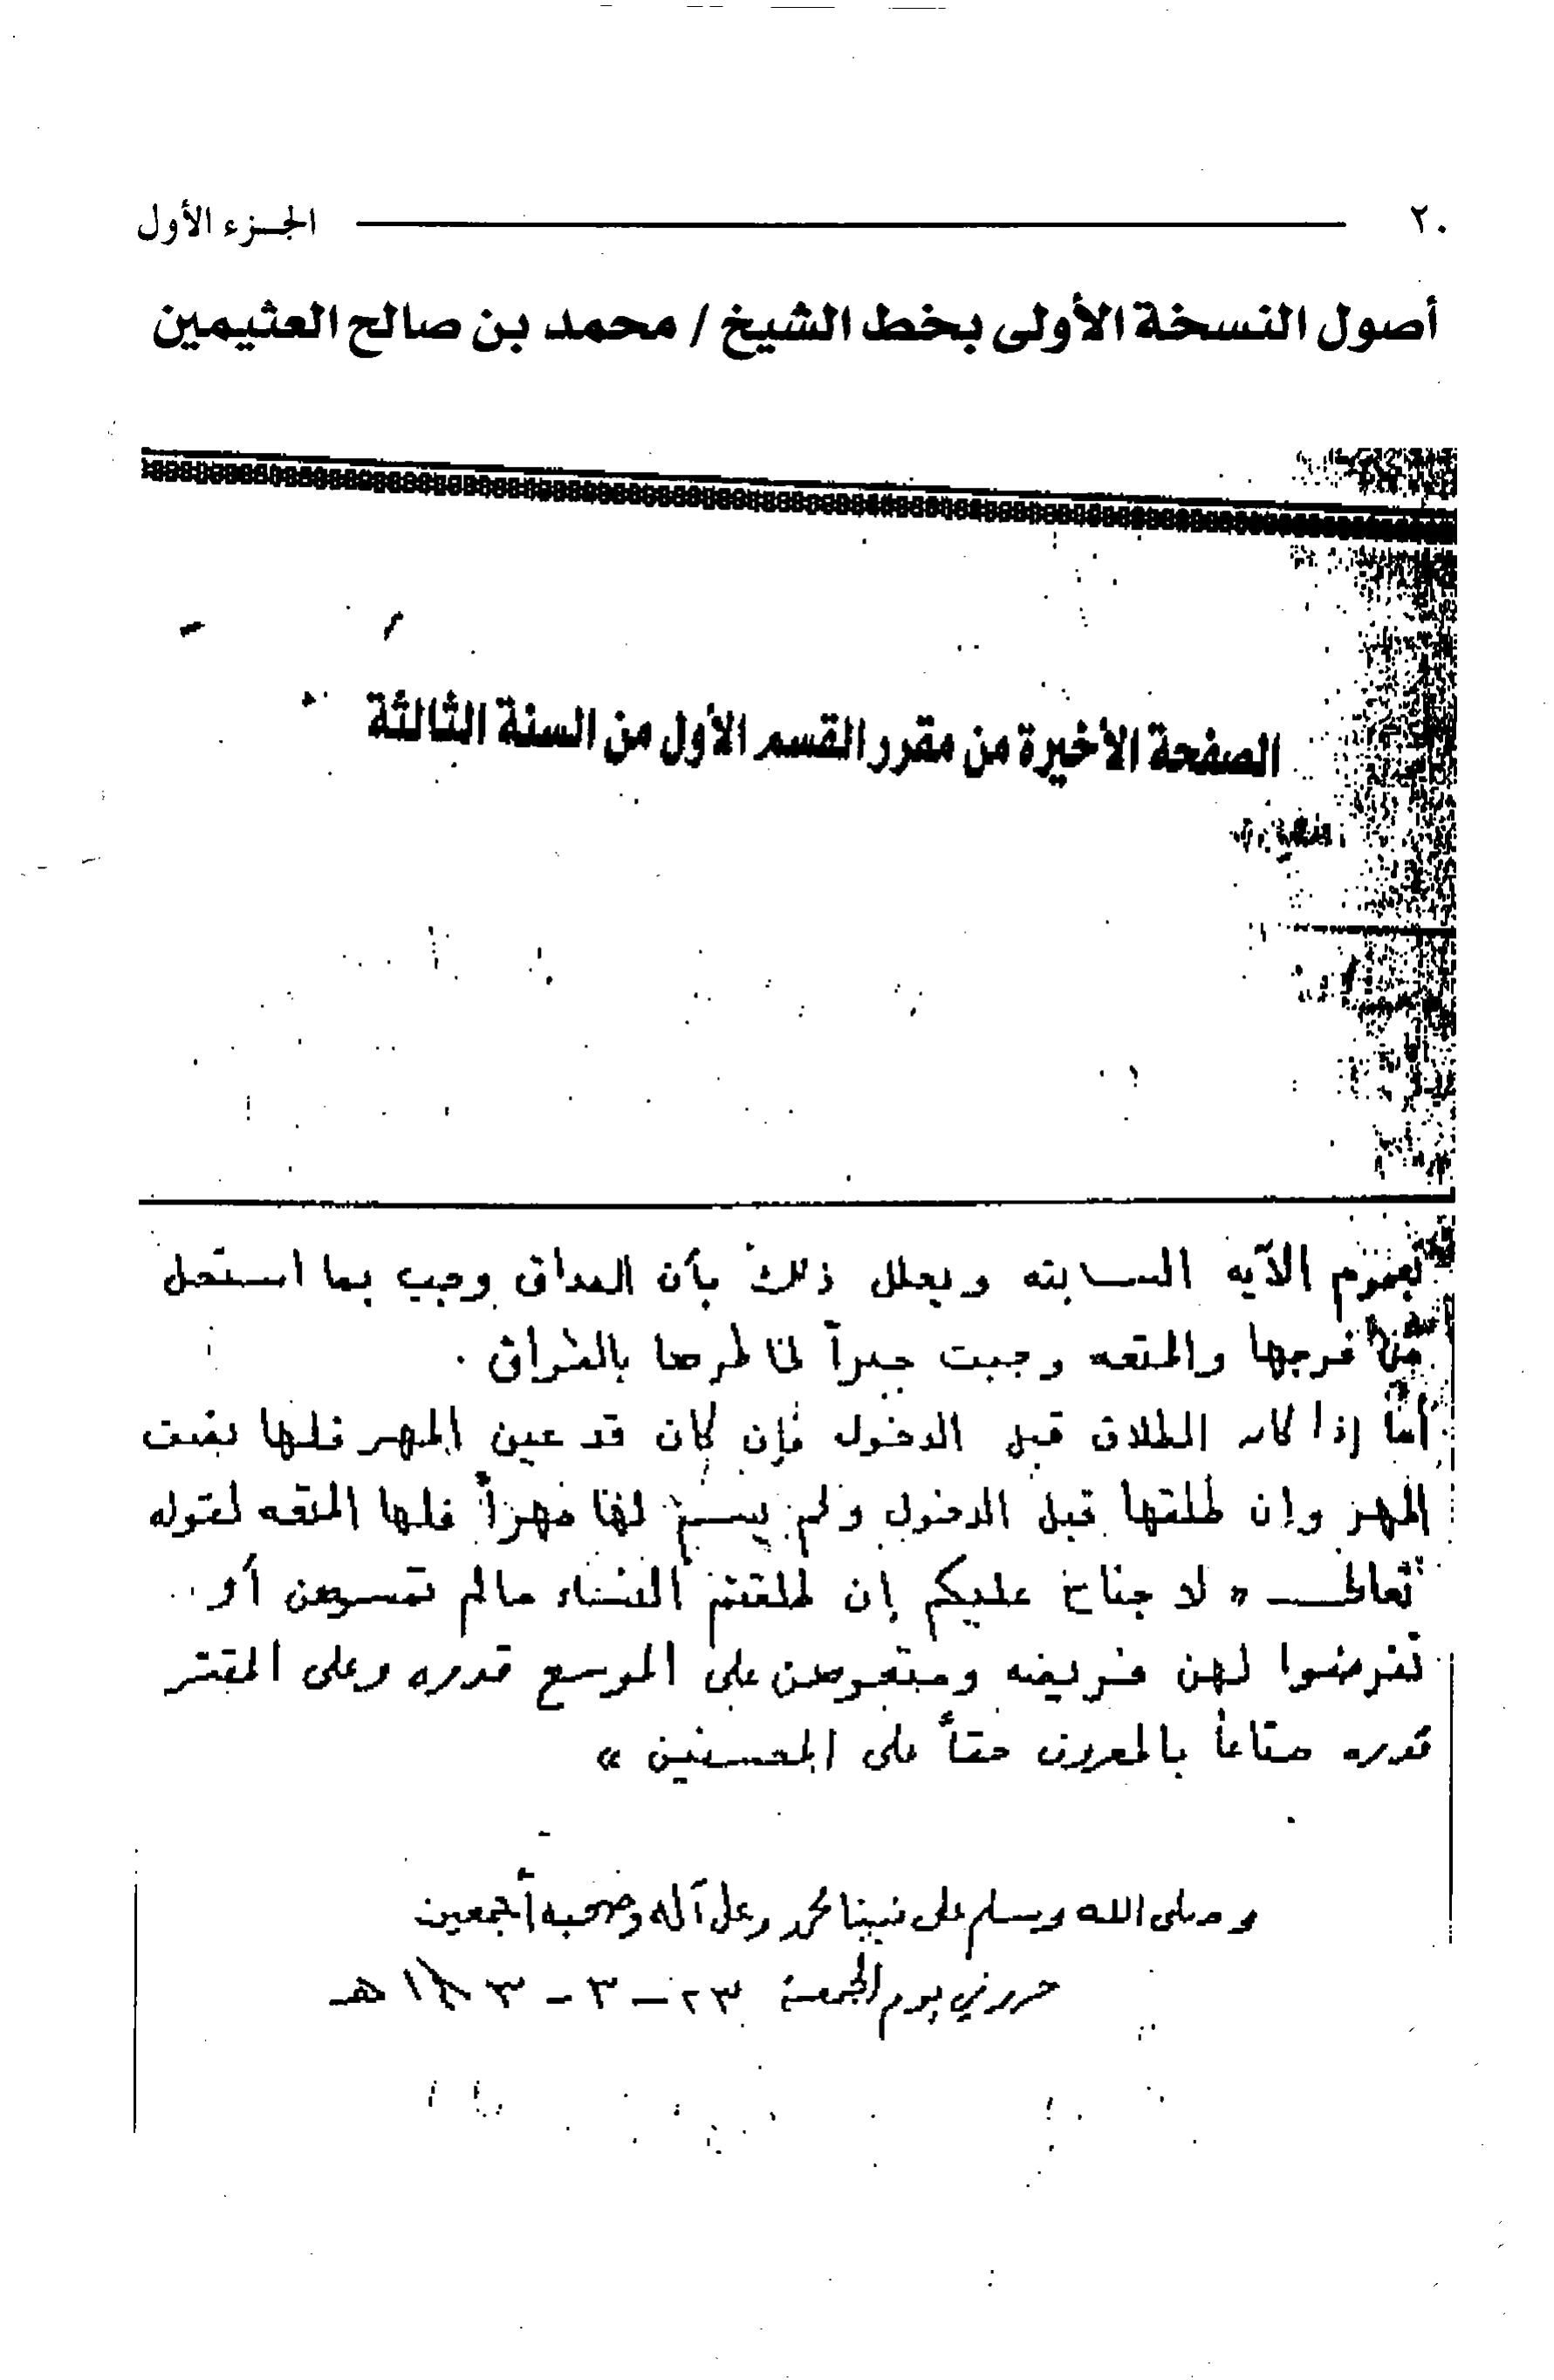 ٢٠ الجزء الأول
أصول النسخة الأولى بخط الشيخ / محمد بن صالح العثيمين
الصفحة الأخيرة من مقرر القسم الأول من السنة الثالثة
بعموم الآيه السابقه ويعلل ذلك بأن الصداق وجب بما استحل
من فرجها والمتعه وجبت جبراً لخاطرها بالفراق .
أما إذا كان الطلاق قبل الدخول فإن كان قد عين المهر فلها نصف
المهر وإن طلقها قبل الدخول ولم يسم لها مهراً فلها المتعه لقوله
تعالى « لا جناح عليكم إن طلقتم النساء مالم تمسوهن أو
تفرضوا لهن فريضه ومتعوهن على الموسع قدره وعلى المقتر
قدره متاعاً بالمعروف حقاً على المحسنين »
وصلى الله وسلم على نبينا محمد وعلى آله وصحبه أجمعين
حرر في يوم الجمعة ٢٣ - ٣ - هـ